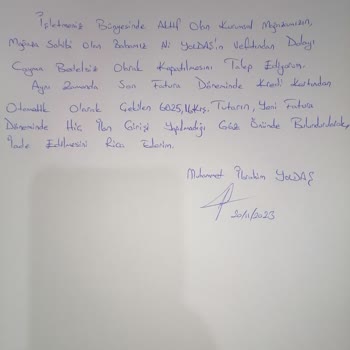 İşletmesiz Bünyesinde Aktif Olan Kurumsal Mağazamızın,
Mağaza Sahibi Olan Babamız Ali YOLDAŞ'ın Vefatından Dolayı
Cayma Bedelsiz Olarak Kapatılmasını Talep Ediyorum.
Aynı Zamanda Son Fatura Döneminde Kredi Kartından
Otomatik Olarak Çekilen 6025,16 Krş. Tutarın, Yeni Fatura
Döneminde Hiç İlan Girişi Yapılmadığı Göz Önünde Bulundurularak,
İade Edilmesini Rica Ederim.
Muhammet İbrahim YOLDAŞ
20/11/2023